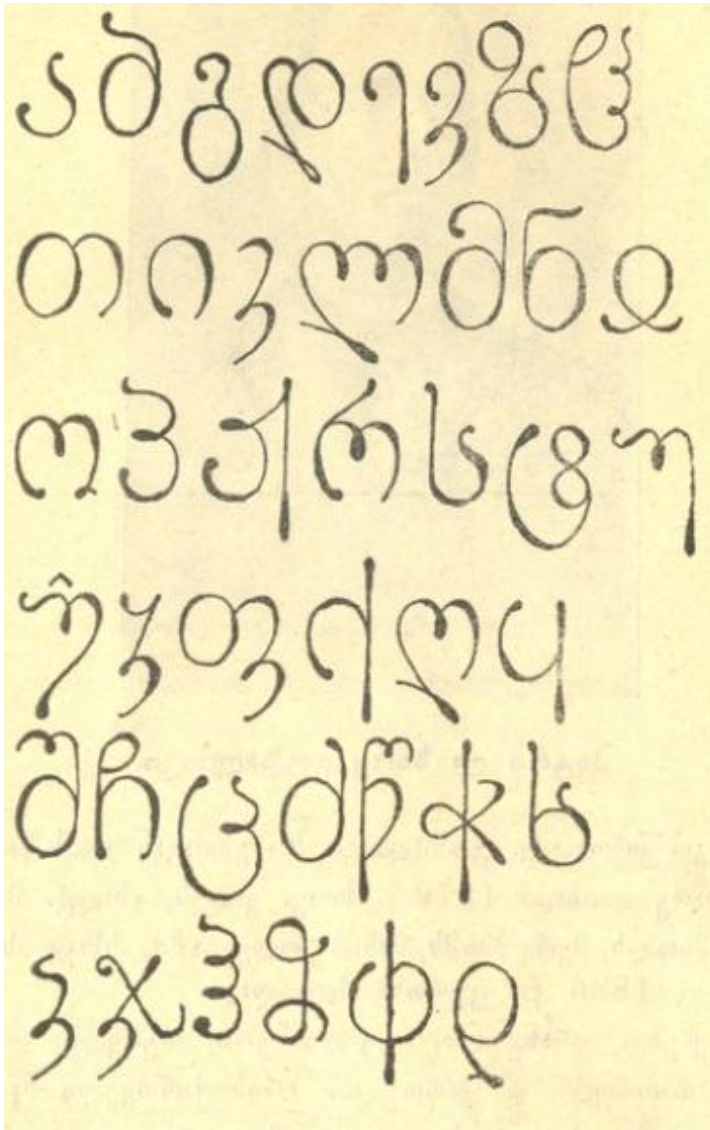 ა ბ გ დ ე ვ ზ ჱ
თ ი კ ლ მ ნ ჲ
ო პ ჟ რ ს ტ უ
უ̂ ჳ ფ ქ ღ ყ
შ ჩ ც ძ წ ჭ ხ
ჴ ჯ ჰ ჵ ჶ